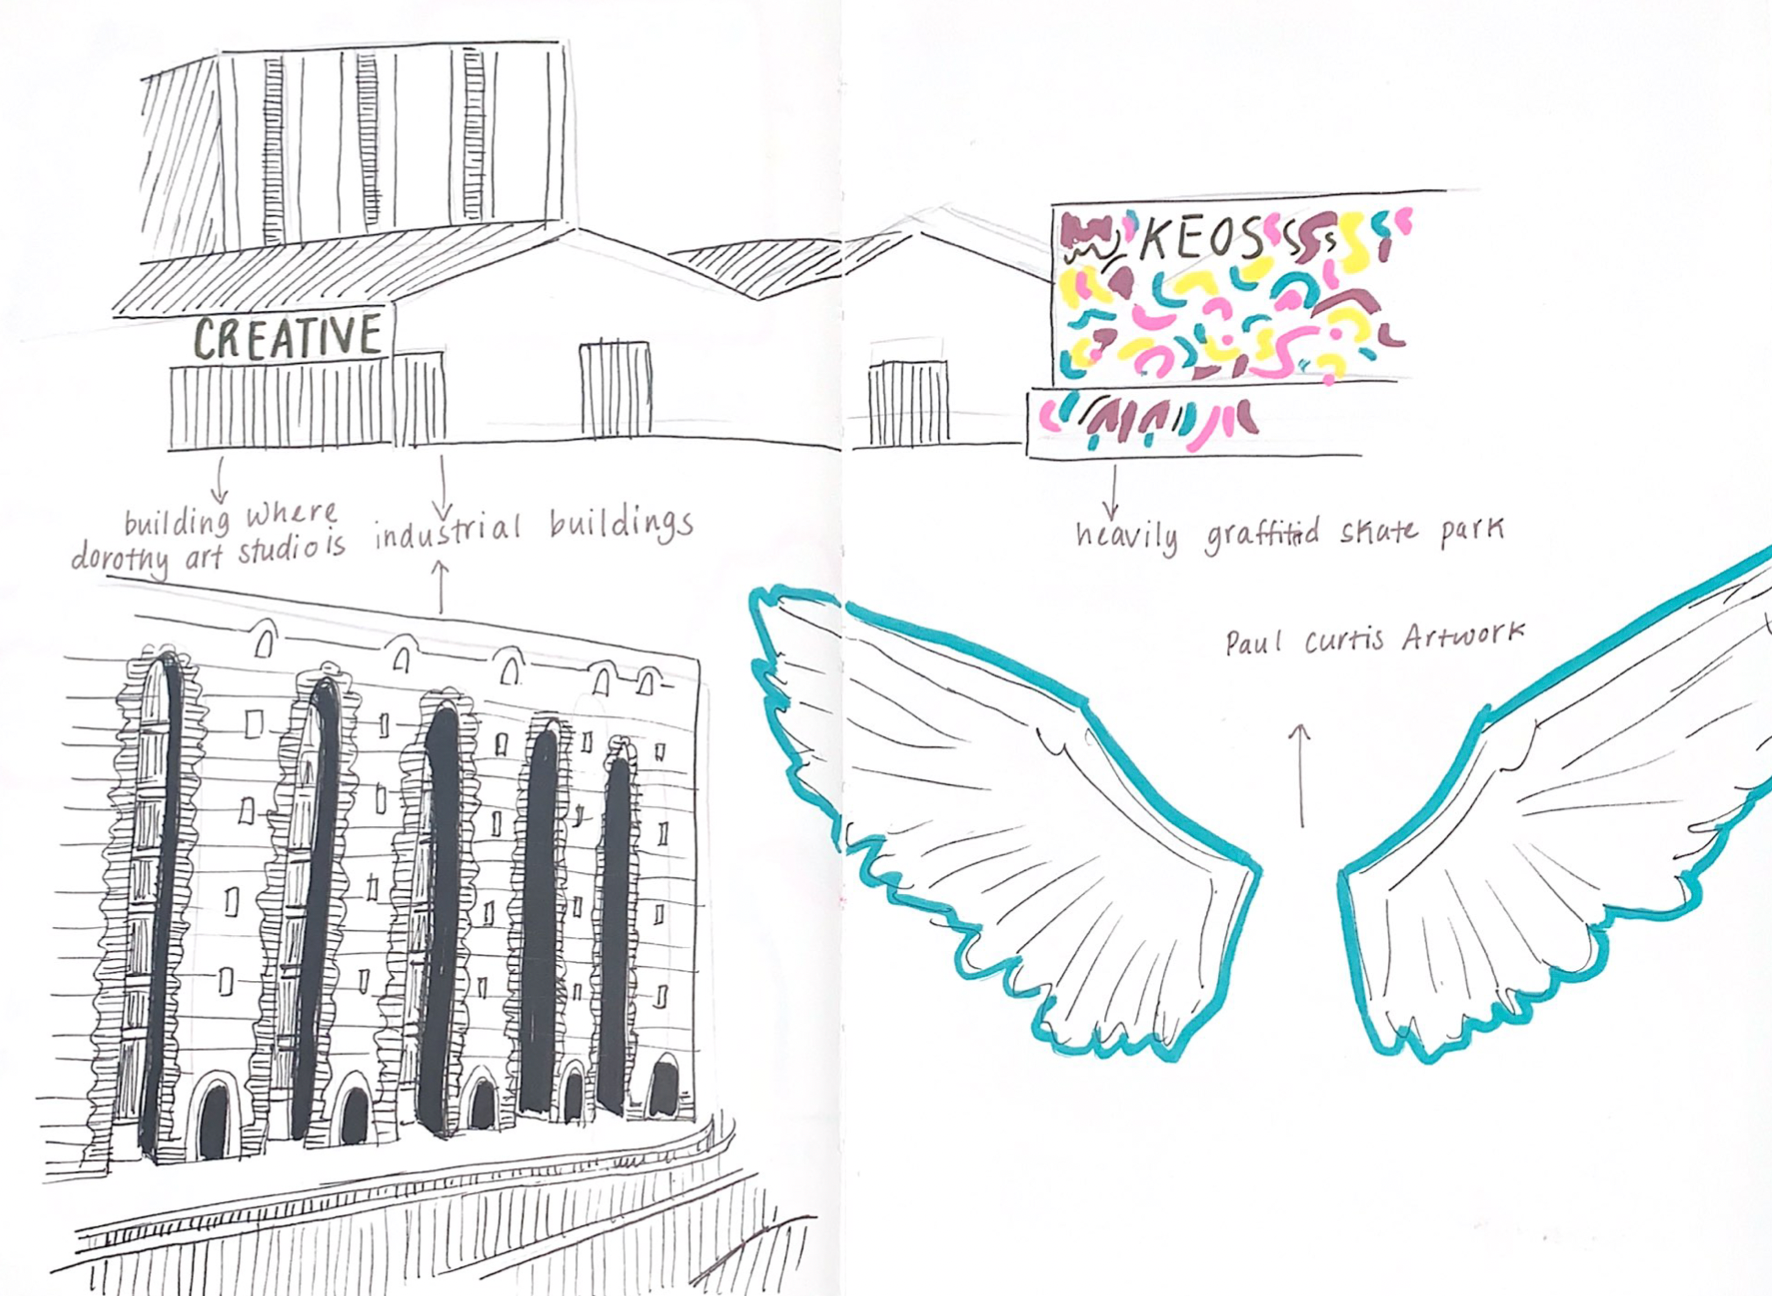 CREATIVE
KEOSSSS
building where
dorothy art studio is
industrial buildings
heavily graffitid skate park
Paul Curtis Artwork